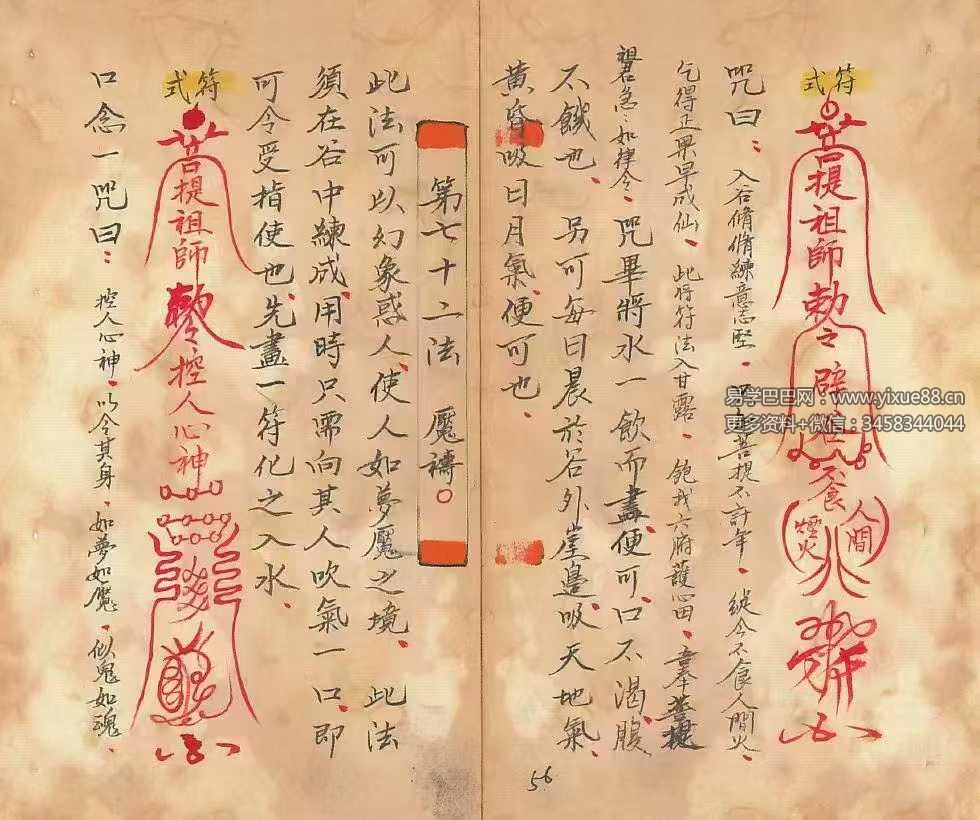 符式
菩提祖師勅令
不食
人間
煙火
咒曰：入谷脩脩練意志堅、菩提不計年、緃今不食人間火、
乞得正果早成仙、此将符法入甘露、飽我六府護心田、奉菩提
急急如律令、咒畢將水一飲而盡、便可、口不渴、腹
不餓也、另可每日晨於谷外崖邊、吸天地氣、
黄昏吸日月氣、便可也、
第七十二法 魘禱。
此法可以幻象惑人、使人如夢魘之境、此法
須在谷中練成、用時只需向其人吹氣一口、即
可令受指使也、先畫一符化之入水、
口念一咒曰：控人心神、以令其身、如夢如魘、似鬼如魂、
符式
菩提祖師勅令控人心神
56
易学巴巴网：www.yixue88.cn
更多资料+微信：3458344044